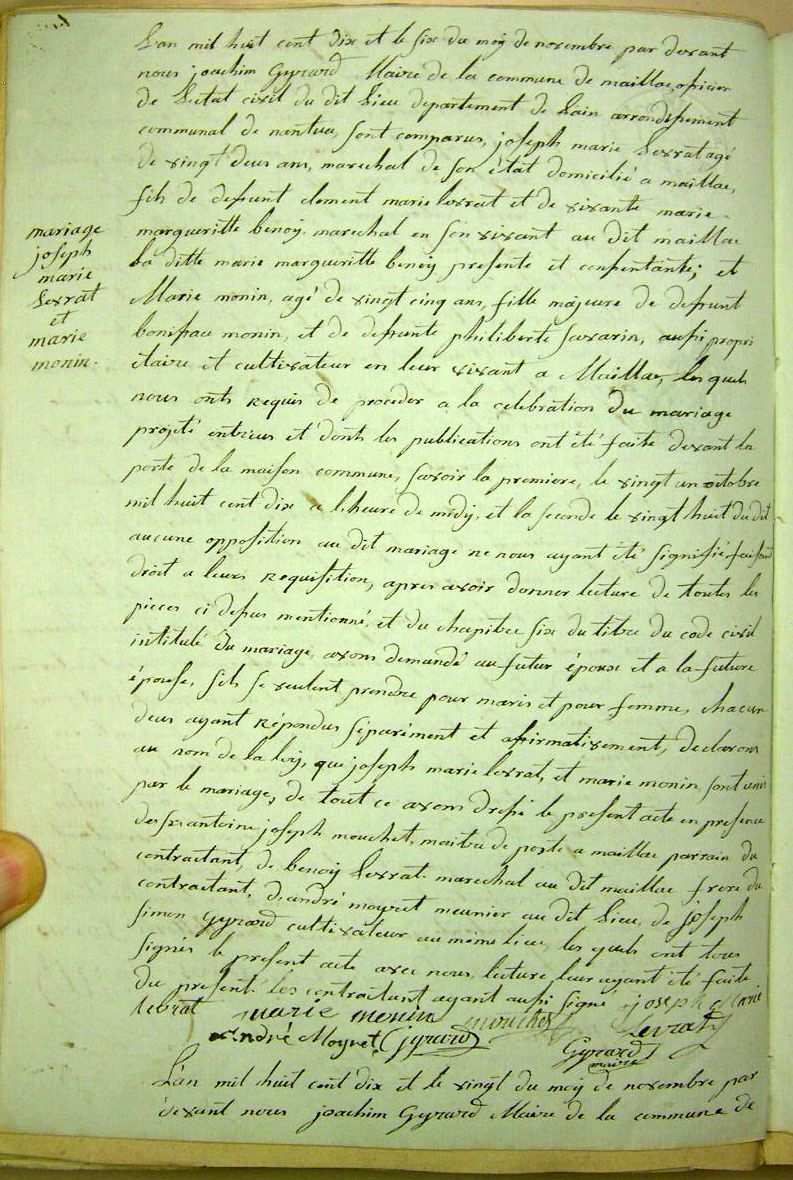 L'an mil huit cent dix et le six du moy de novembre par devant
nous joachim Gyrard Maire de la commune de maillac, oficier
de L'etat civil du dit Lieu departement de Lain arrondissement
communal de nantua, sont comparus, joseph marie Levrat agé
de vingt deux ans, marechal de son état domicilié a maillac,
fils de defunt clement marie levrat et de vivante marie
mariage
margueritte benoy. marechal en son vivant au dit maillac
joseph
la ditte marie margueritte benoy presente et consentante; et
marie
Levrat
Marie monin, agé de vingt cinq ans, fille majeure de defunt
et
marie
boniface monin, et de defunte philiberte savarin, aussi propri
monin.
etaire et cultivateur en leur vivant a Maillac, les quels
nous onts Requis de proceder a la celebration du mariage
projeté entr'eux et donts les publications ont été faite devant la
porte de la maison commune, savoir la premiere, le vingt un octobre
mil huit cent dix a l'heure de midy, et la seconde le vingt huit du dit
aucune opposition au dit mariage ne nous ayant été signifié faisant
droit a leurs Requisition, apres avoir donner lecture de toutes les
pieces ci dessus mentionné, et du chapitre six du titre du code civil
intitulé du mariage, avons demandé au futur époux et a la future
épouse, s'ils se veulent prendre pour maris et pour femme, chacun
deux ayant Répondus séparément et afirmativement, declarons
au nom de la loy, que joseph marie levrat, et marie monin, sont unis
par le mariage, de tout ce avons dressé le present acte en presence
des sr. antoine joseph mouchet, maitre de poste a maillac parrain du
contractant, de benoy Levrat. marechal au dit maillac frere du
contractant, d'andré moyret meunier au dit Lieu, de joseph
simon Gyrard cultivateur au même lieu, les quels ont tous
signés le present acte avec nous, lecture leur ayant été faite
du present. les contractant ayant aussi signé joseph Marie
levrat marie monin mouchet Levrat
André Moyret Gyrard Gyrard
maire
L'an mil huit cent dix et le vingt du moy de novembre par
devant nous joachim Gyrard Maire de la commune de